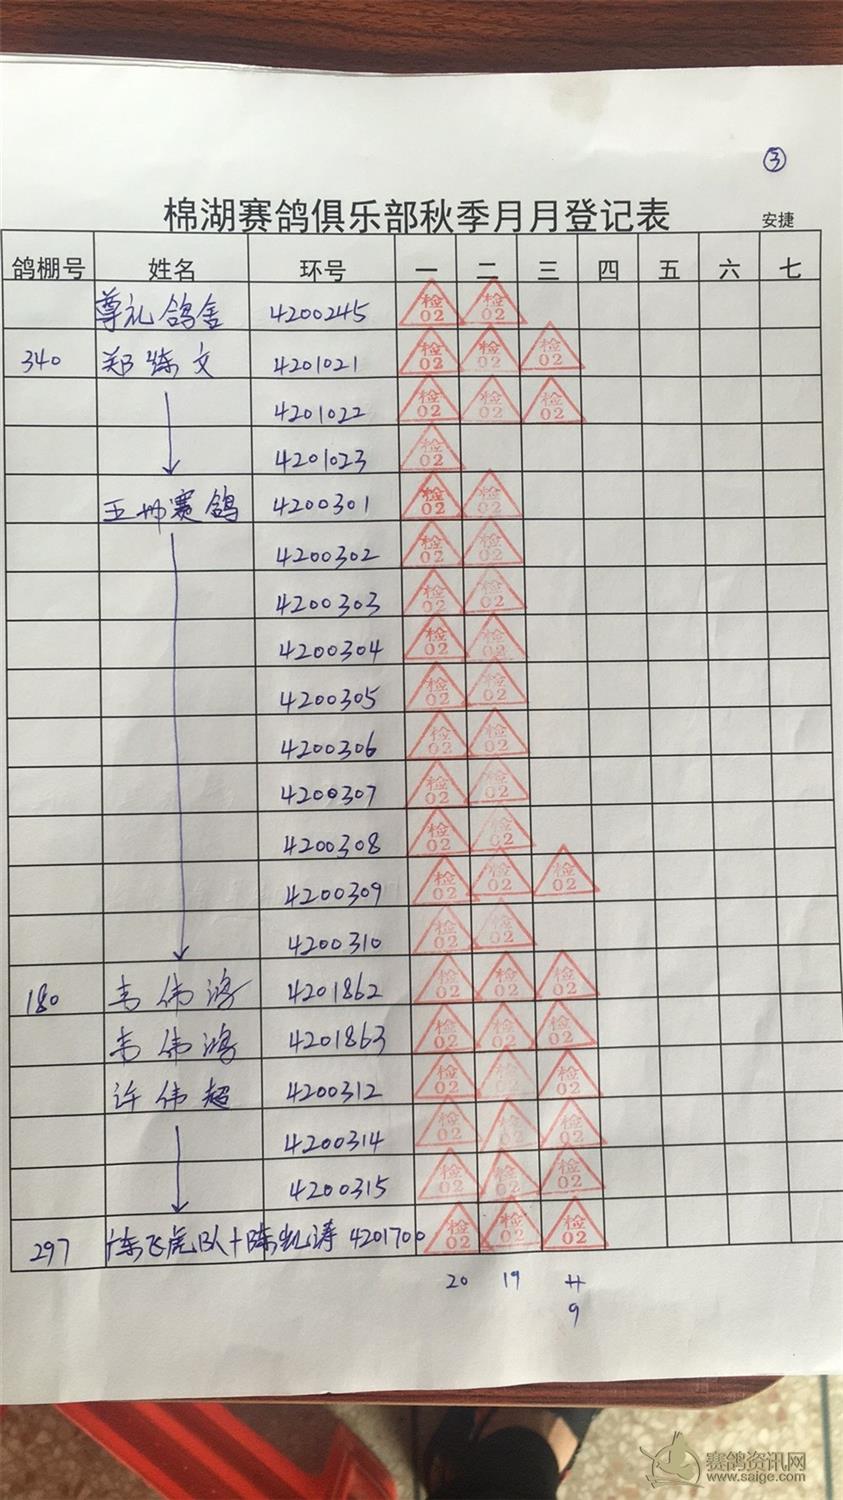 ③
棉湖赛鸽俱乐部秋季月月登记表 安捷
鸽棚号 姓名 环号 一 二 三 四 五 六 七
尊礼鸽舍 4200245 检02 检02
340 郑练文 4201021 检02 检02 检02
4201022 检02 检02 检02
4201023 检02
王帅赛鸽 4200301 检02 检02
4200302 检02 检02
4200303 检02 检02
4200304 检02 检02
4200305 检02 检02
4200306 检02 检02
4200307 检02 检02
4200308 检02 检02
4200309 检02 检02 检02
4200310 检02 检02
180 韦伟鸿 4201862 检02 检02 检02
韦伟鸿 4201863 检02 检02 检02
许伟超 4200312 检02 检02 检02
4200314 检02 检02 检02
4200315 检02 检02 检02
297 陈飞虎队+陈凯涛 4201700 检02 检02 检02
20 19
9
赛鸽资讯网
www.saige.com